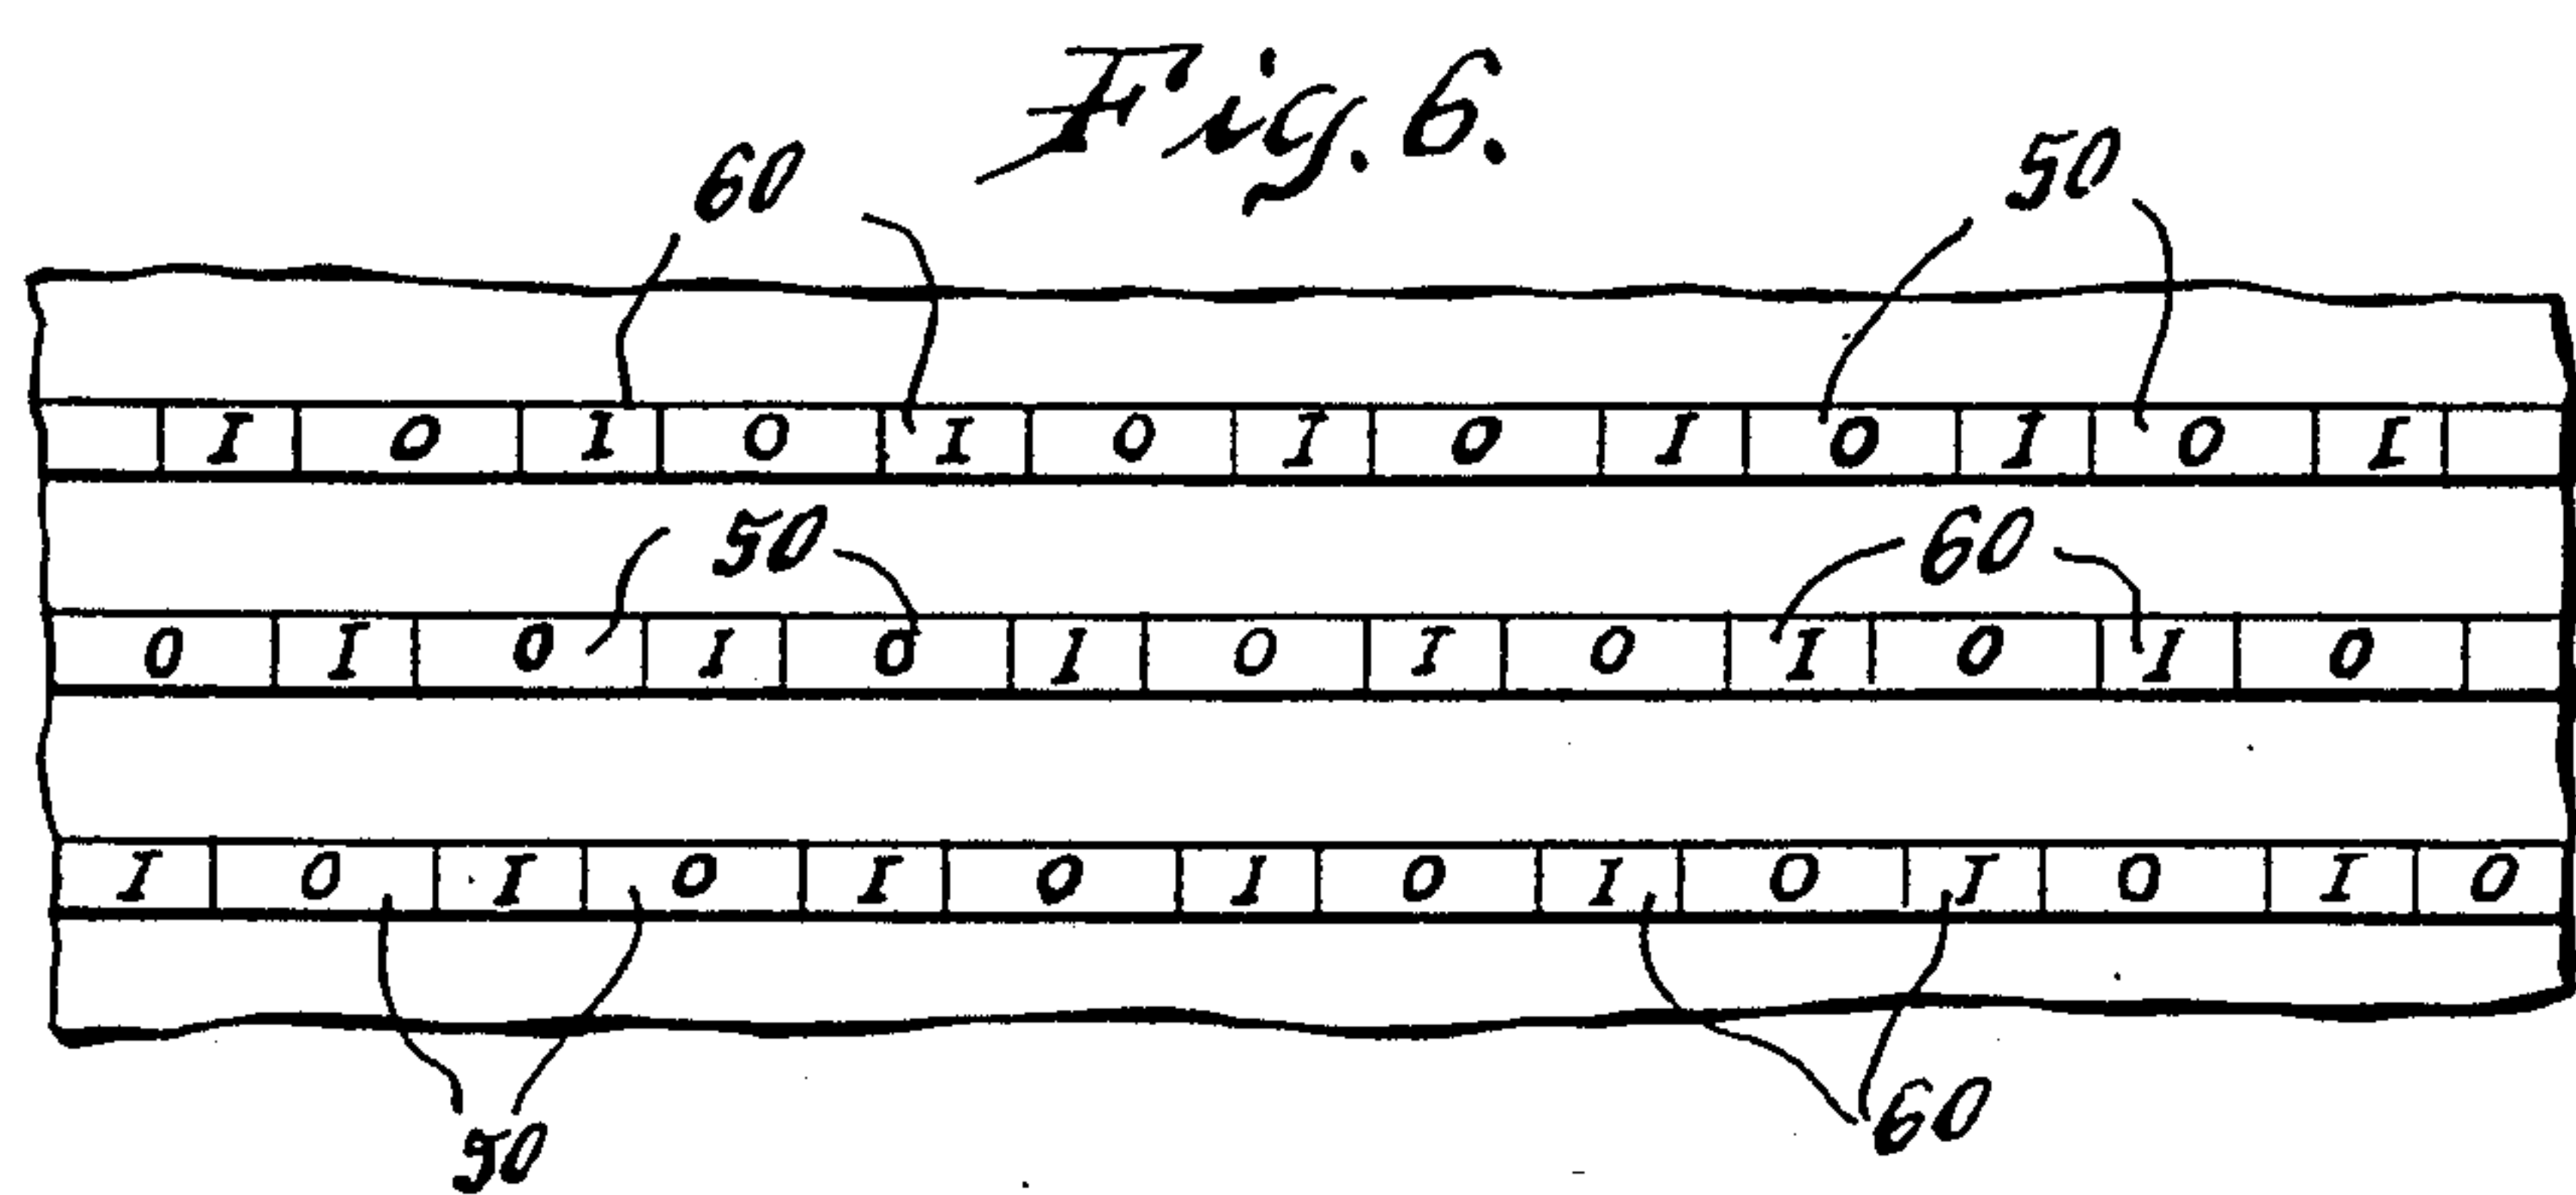 Fig. 6.
60 50
I O I O I O I O I O I O I
50 60
O I O I O I O I O I O I O
I O I O I O I O I O I O I O
50 60